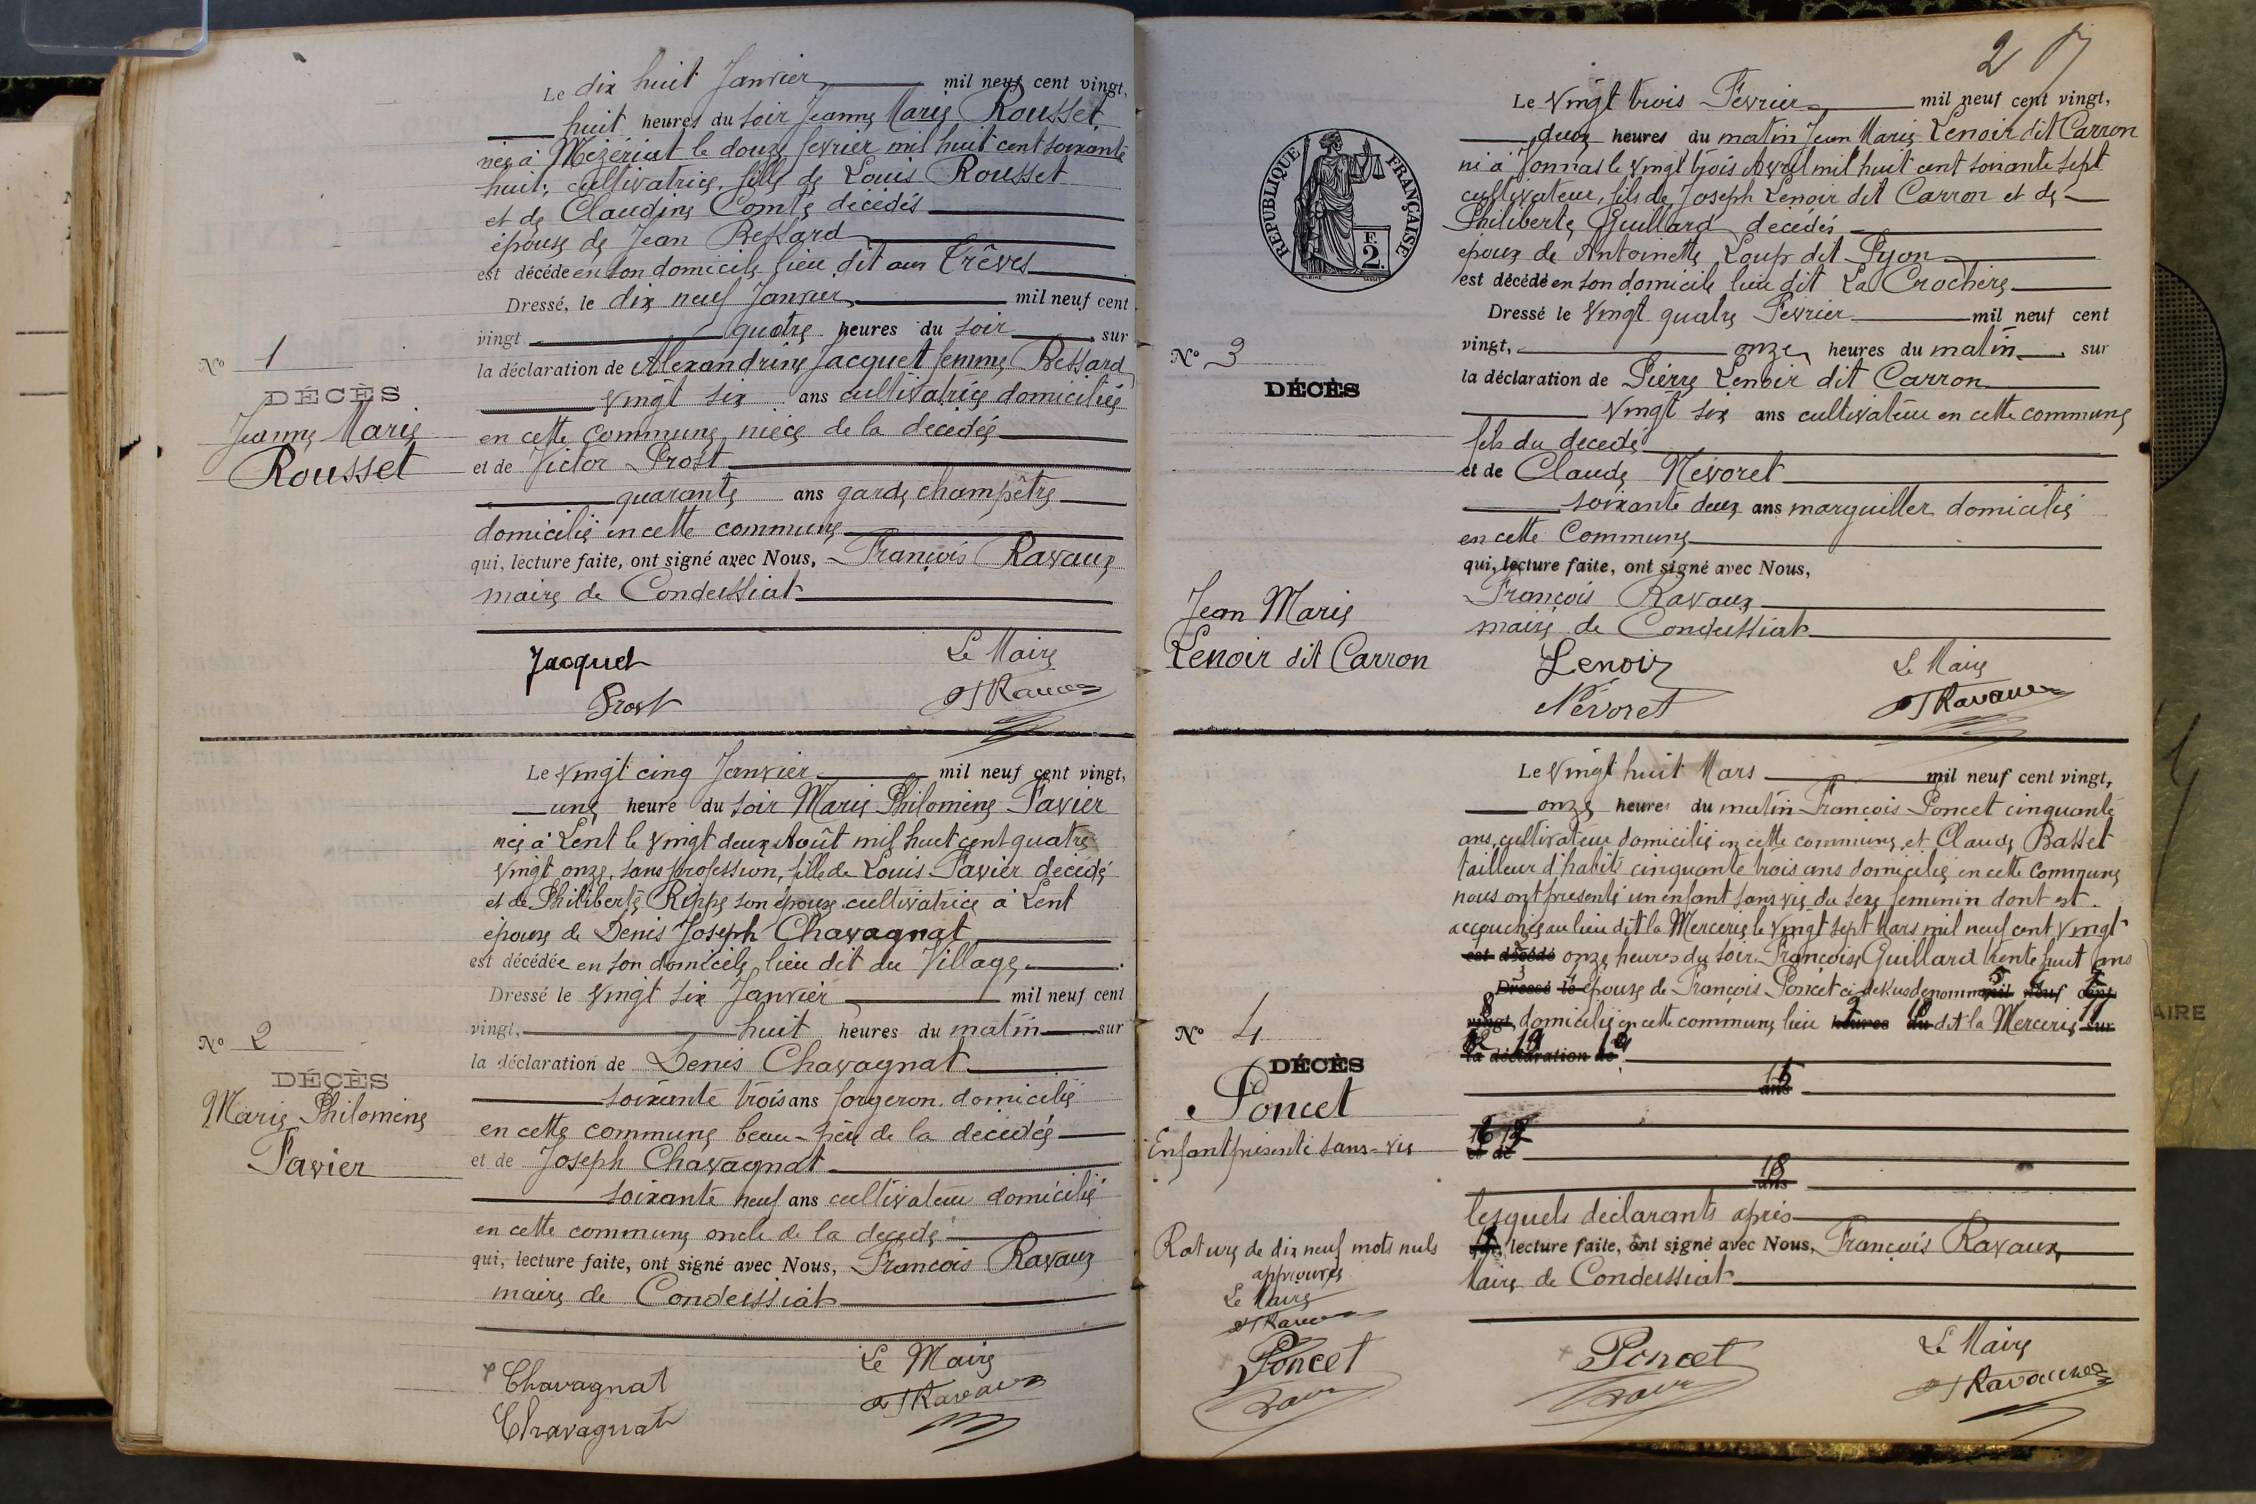 Le dix huit Janvier mil neuf cent vingt,
huit heures du soir Jeanne Marie Rousset
née à Mézériat le douze février mil huit cent soixante
huit, cultivatrice, fille de Louis Rousset
et de Claudine Comte décédés
épouse de Jean Bessard
est décédée en son domicile lieu dit aux Trêves
Dressé, le dix neuf Janvier mil neuf cent
vingt quatre heures du soir, sur
la déclaration de Alexandrine Jacquet femme Bessard
vingt six ans cultivatrice domiciliée
en cette commune, nièce de la décédée
et de Victor Prost
quarante ans garde champêtre
domicilié en cette commune
qui, lecture faite, ont signé avec Nous, François Ravaux
maire de Condeissiat
Nº 1
DÉCÈS
Jeanne Marie
Rousset
Jacquet
Prost
Le Maire
F Ravaux
Le vingt cinq Janvier mil neuf cent vingt,
une heure du soir Marie Philomène Favier
née à Lent le vingt deux Août mil huit cent quatre
vingt onze, sans profession, fille de Louis Favier décédé
et de Philiberte Rippe son épouse cultivatrice à Lent
épouse de Denis Joseph Chavagnat
est décédée en son domicile, lieu dit du Village
Dressé le vingt six Janvier mil neuf cent
vingt, huit heures du matin sur
la déclaration de Denis Chavagnat
soixante trois ans forgeron domicilié
en cette commune beau-père de la décédée
et de Joseph Chavagnat
soixante neuf ans cultivateur domicilié
en cette commune oncle de la décédé
qui, lecture faite, ont signé avec Nous, François Ravaux
maire de Condeissiat
Nº 2
DÉCÈS
Marie Philomène
Favier
Chavagnat
Chavagnat
Le Maire
F Ravaux
2
RÉPUBLIQUE FRANÇAISE
F.
2.
Le vingt trois Février mil neuf cent vingt,
deux heures du matin Jean Marie Lenoir dit Carron
né à Jonnas le vingt trois Avril mil huit cent soixante sept
cultivateur, fils de Joseph Lenoir dit Carron et de
Philiberte Guillard décédés
époux de Antoinette Loup dit Lyon
est décédé en son domicile lieu dit La Crochère
Dressé le vingt quatre Février mil neuf cent
vingt, onze heures du matin, sur
la déclaration de Pierre Lenoir dit Carron
vingt six ans cultivateur en cette commune
fils du decedé
et de Claude Névoret
soixante deux ans marguiller domicilié
en cette Commune
qui, lecture faite, ont signé avec Nous,
François Ravaux
maire de Condeissiat
Nº 3
DÉCÈS
Jean Marie
Lenoir dit Carron
Lenoir
Névoret
Le Maire
F Ravaux
Le vingt huit Mars mil neuf cent vingt,
onze heures du matin François Poncet cinquante
ans, cultivateur domicilié en cette commune, et Claude Basset
tailleur d'habits cinquante trois ans domicilié en cette commune
nous ont présenté un enfant sans vie du sexe féminin dont est
accouchée au lieu dit la Mercerie le vingt sept Mars mil neuf cent vingt
est décédé onze heures du soir Françoise Guillard trente huit ans
Dressé le épouse de François Poncet ci dessus dénommé mil neuf cent
vingt, domiciliée en cette commune lieu heures du dit la Mercerie sur
la déclaration de
ans
et de
ans
lesquels déclarants après
qui, lecture faite, ont signé avec Nous, François Ravaux,
Maire de Condeissiat
Nº 4
DÉCÈS
Poncet
Enfant présenté sans-vie
Rature de dix neuf mots nuls
approuvés
Le Maire
F Ravaux
Poncet
Poncet
Le Maire
F Ravaux
AIRE